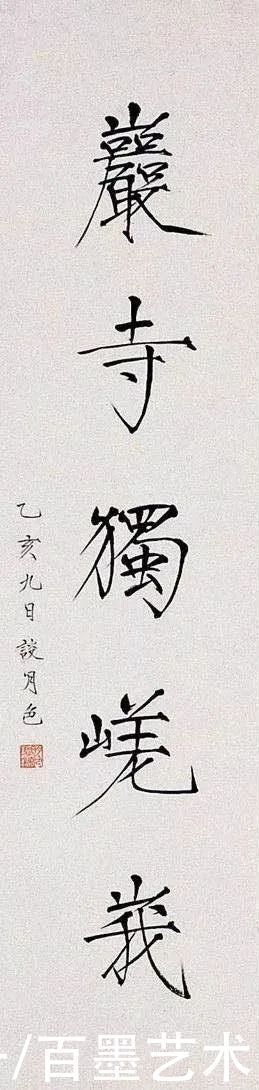 巖寺獨嵯峩
乙亥九日談月色
/百墨艺术